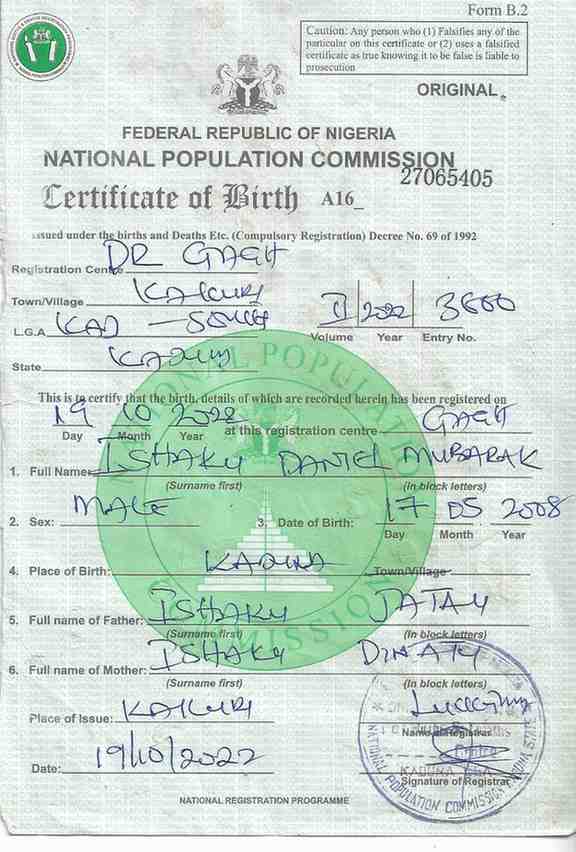 Form B.2
Caution: Any person who (1) Falsifies any of the
particular on this certificate or (2) uses a falsified
certificate as true knowing it to be false is liable to
prosecution
ORIGINAL
FEDERAL REPUBLIC OF NIGERIA
NATIONAL POPULATION COMMISSION
27065405
Certificate of Birth A16_
issued under the births and Deaths Etc. (Compulsory Registration) Decree No. 69 of 1992
Registration Centre DR GAGH
Town/Village KAKURI
II 2022 3660
L.G.A KAD - SOUTH
Volume Year Entry No.
State KADUNA
This is to certify that the birth, details of which are recorded herein has been registered on
19 10 2022 at this registration centre GAGH
Day Month Year
1. Full Name ISHAKU DANIEL MUBARAK
(Surname first) (In block letters)
2. Sex: MALE 3. Date of Birth: 17 05 2008
Day Month Year
4. Place of Birth: KADUNA Town/Village
5. Full name of Father: ISHAKU JATAU
(Surname first) (In block letters)
6. Full name of Mother: ISHAKU
(Surname first) (In block letters)
Place of Issue: KAKURI
Name of Registrar
Date: 19/10/2022
Signature of Registrar
NATIONAL POPULATION COMMISSION
NATIONAL REGISTRATION PROGRAMME